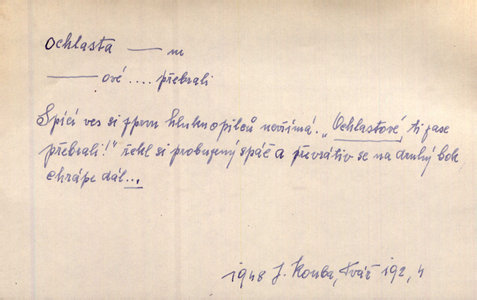 Ochlasta — m
— ové .... přebrali
Spící ves si zprvu hluku opilců nevšímá. „Ochlastové, ti zase
přebrali!" řekl si probuzený spáč a převrátiv se na druhý bok
chrápe dál...
1948 J. Kouba, Tvář 192, 4